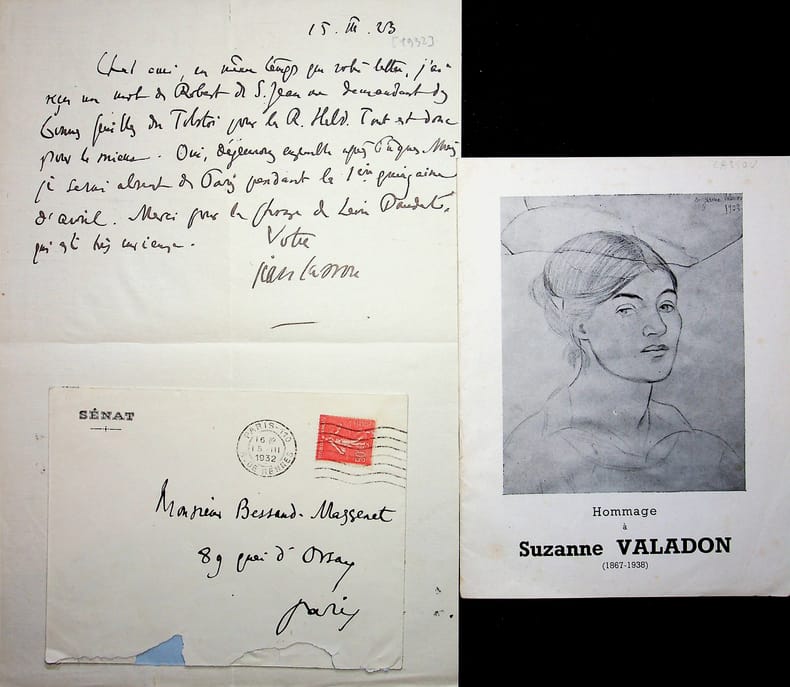 15. III. 23
[1932]
Cher ami, en même temps que votre lettre, j'ai
reçu un mot de Robert de S. Jean me demandant des
bonnes feuilles du Tolstoï pour la R. Hebd. Tout est donc
pour le mieux. Oui, déjeunons ensemble après Pâques. Mais
je serai absent de Paris pendant la 1ère quinzaine
d'avril. Merci pour la phrase de Léon Daudet,
qui est très curieuse.
Votre
Jean Cassou
SÉNAT
PARIS-110
16 H
15 III
1932
R. DE RENNES
Monsieur Bessand-Massenet
89 quai d'Orsay
Paris
CASSOU
Suzanne Valadon
1903
Hommage
à
Suzanne VALADON
(1867-1938)